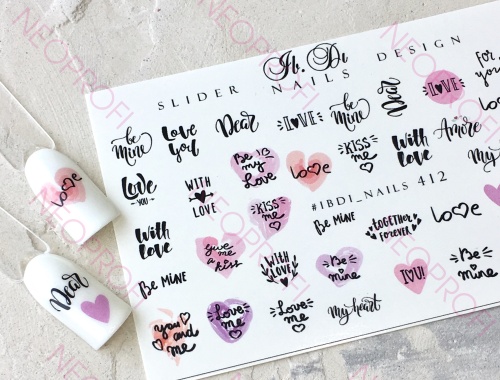 Ib. Di
SLIDER NAILS DESIGN
be mine
Love you
Dear
LOVE
be mine
Dear
I LOVE
for you
Love
YOU
WITH LOVE
Be my Love
Love
KISS me
With love
Amore
My
With love
give me a kiss
KISS me
#IBDI_NAILS 412
BE MINE
TOGETHER FOREVER
LOVE
BE MINE
WITH LOVE
Be mine
I U!
Be mine
you and me
Love me
Love me
My heart
Love
Dear
NEOPROFI
NEOPROFI
NEOPROFI
NEOPROFI
NEOPROFI
NEOPROFI